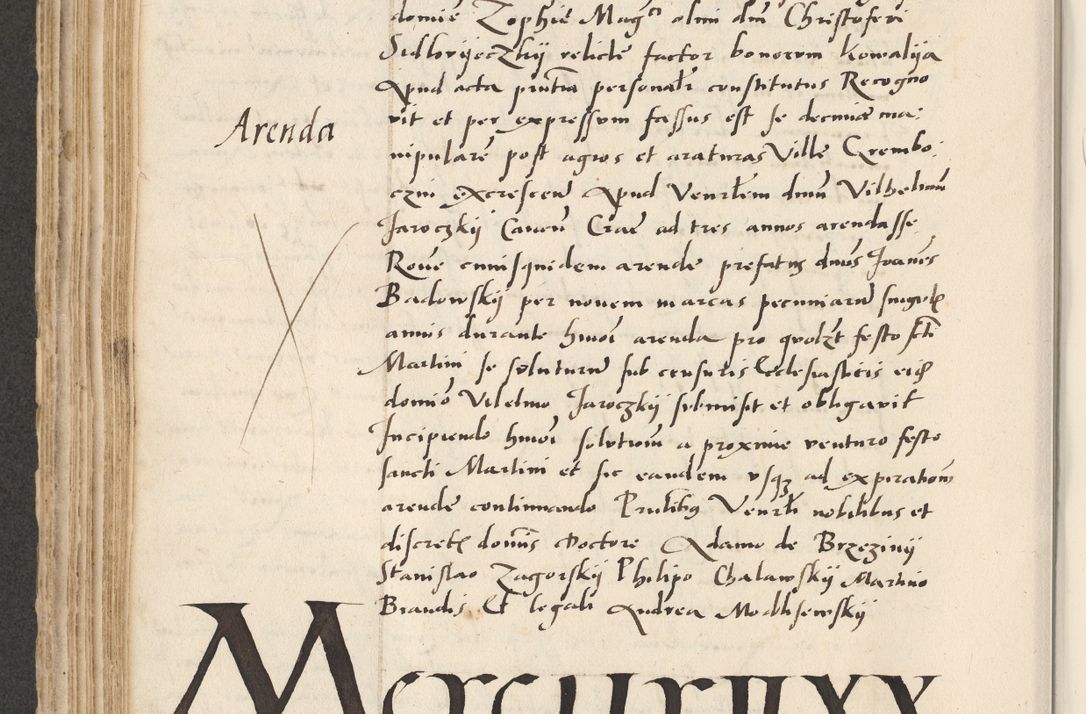 domie Zophie Magci olim dni Christoferi
Sidlovijeczkij relicte factor bonorum Kowalija
Apud acta pntia personalr constitutus Recogno
vit et per expressum fassus est se decimā ma:
nipularē post agros et araturas Ville Grembo:
Arenda
czni excrescen Apud Venrlem dnum Vilhelmum
Jaroczkij Cancn Crac ad tres annos arendasse
Roue cuiusquidem arende prefatus dnus Joannes
Badowskij per novem marcas pecuniarum singulis
annis durante hmoi arenda pro quolzt festo scti
Martini se soluturum sub censuris Ecclesiasticis eidm
domio Vilelmo Jaroczkij submisit et obligavit
Incipiendo hmoi solutionem a proxime venturo festo
sancti Martini et sic eandem usqz ad expirationem
arende continuando Pntibus Venrli nobilibus et
discretis dominis Doctore Adamo de Brzezinij
Stanislao Zagorskij Philipo Chalawskij Martino
Brandis Et legali Andrea Modlisewskij
Mercurii XX